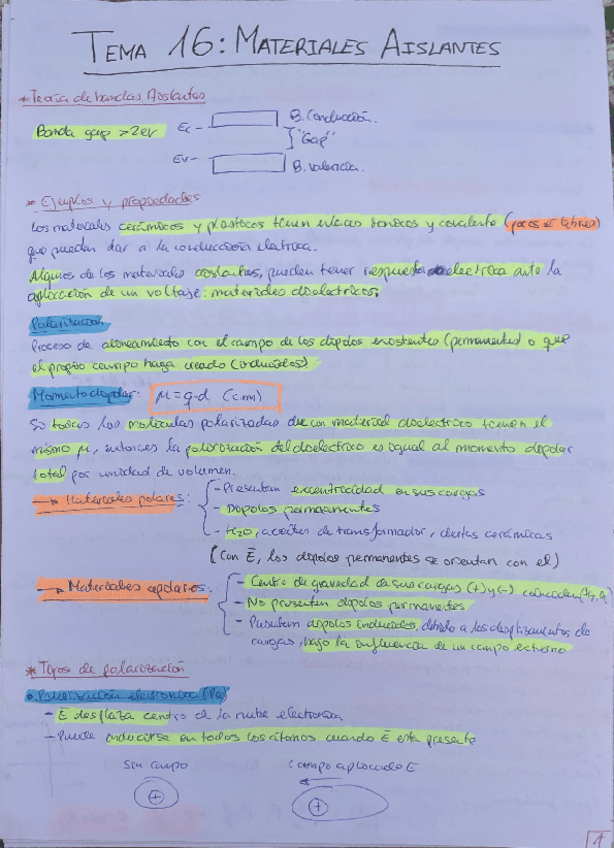 TEMA 16: MATERIALES AISLANTES
* Teoría de bandas Aislantes
Banda gap >2eV
Ec - B. Conducción.
"Gap"
Ev - B. Valencia.
* Ejemplos y propiedades
Los materiales cerámicos y plásticos tienen enlaces iónicos y covalente (pocos e- libres)
que pueden dar a la conducción eléctrica.
Algunos de los materiales aislantes, pueden tener respuesta eléctrica ante la
aplicación de un voltaje: materiales dieléctricos.
Polarización
Proceso de alineamiento con el campo de los dipolos existentes (permanentes) o que
el propio campo haya creado (inducidos)
Momento dipolar: μ = q·d (C·m)
Si todas las moléculas polarizadas de un material dieléctrico tienen el
mismo μ, entonces la polarización del dieléctrico es igual al momento dipolar
total por unidad de volumen.
→ Materiales polares:
- Presentan excentricidad en sus cargas
- Dipolos permanentes
- H2O, aceites de transformador, ciertas cerámicas
(Con E, los dipolos permanentes se orientan con el)
→ Materiales apolares:
- Centro de gravedad de sus cargas (+) y (-) coinciden
- No presentan dipolos permanentes
- Presentan dipolos inducidos, debido a los desplazamientos de
cargas, bajo la influencia de un campo externo
* Tipos de polarización
• Polarización electrónica (Pe)
- E desplaza centro de la nube electrónica
- Puede inducirse en todos los átomos cuando E está presente
Sin campo Campo aplicado E
+ +
1